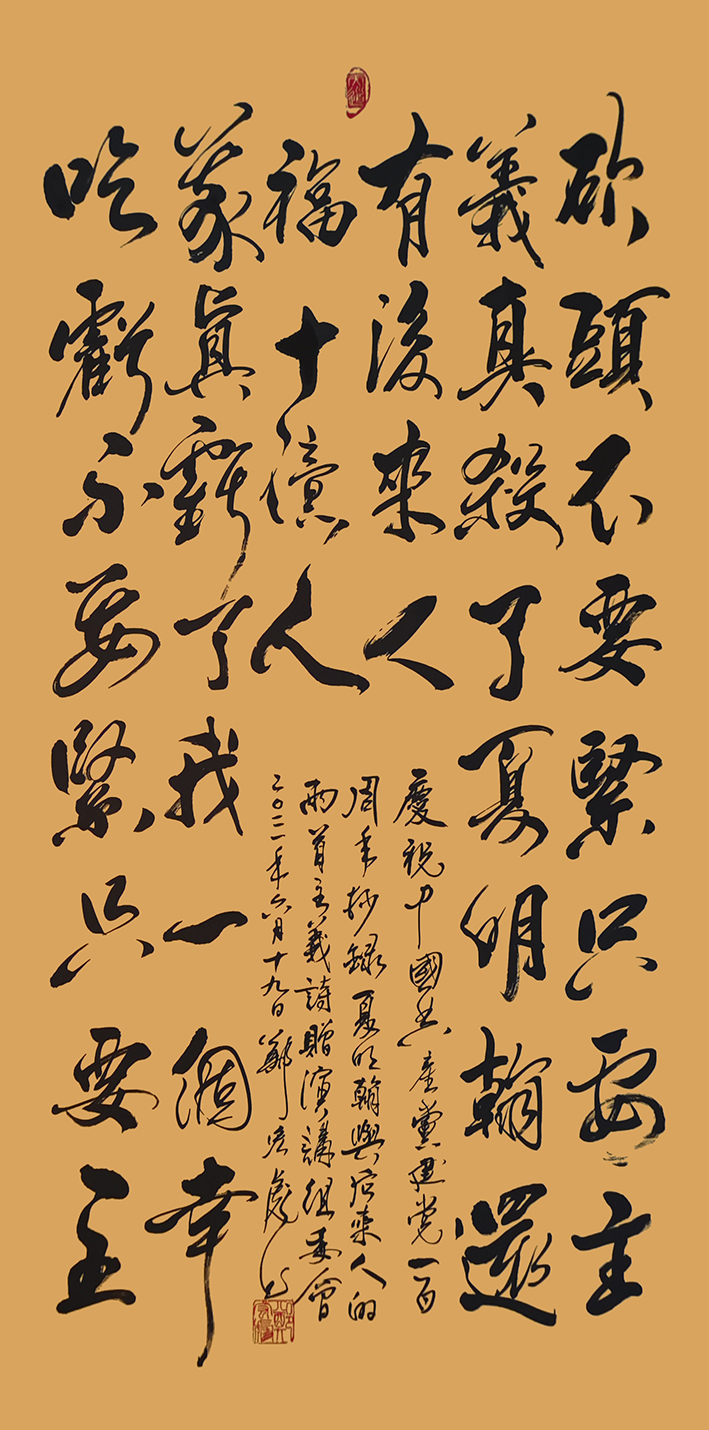 砍頭不要緊只要主
義真殺了夏明翰還
有後來人
吃虧不要緊只要主
義眞虧了我一個幸
福十億人
慶祝中國共産黨建党一百
周年抄録夏明翰與后來人的
两首主義詩贈演講組委會
二〇二一年六月十九日鄭